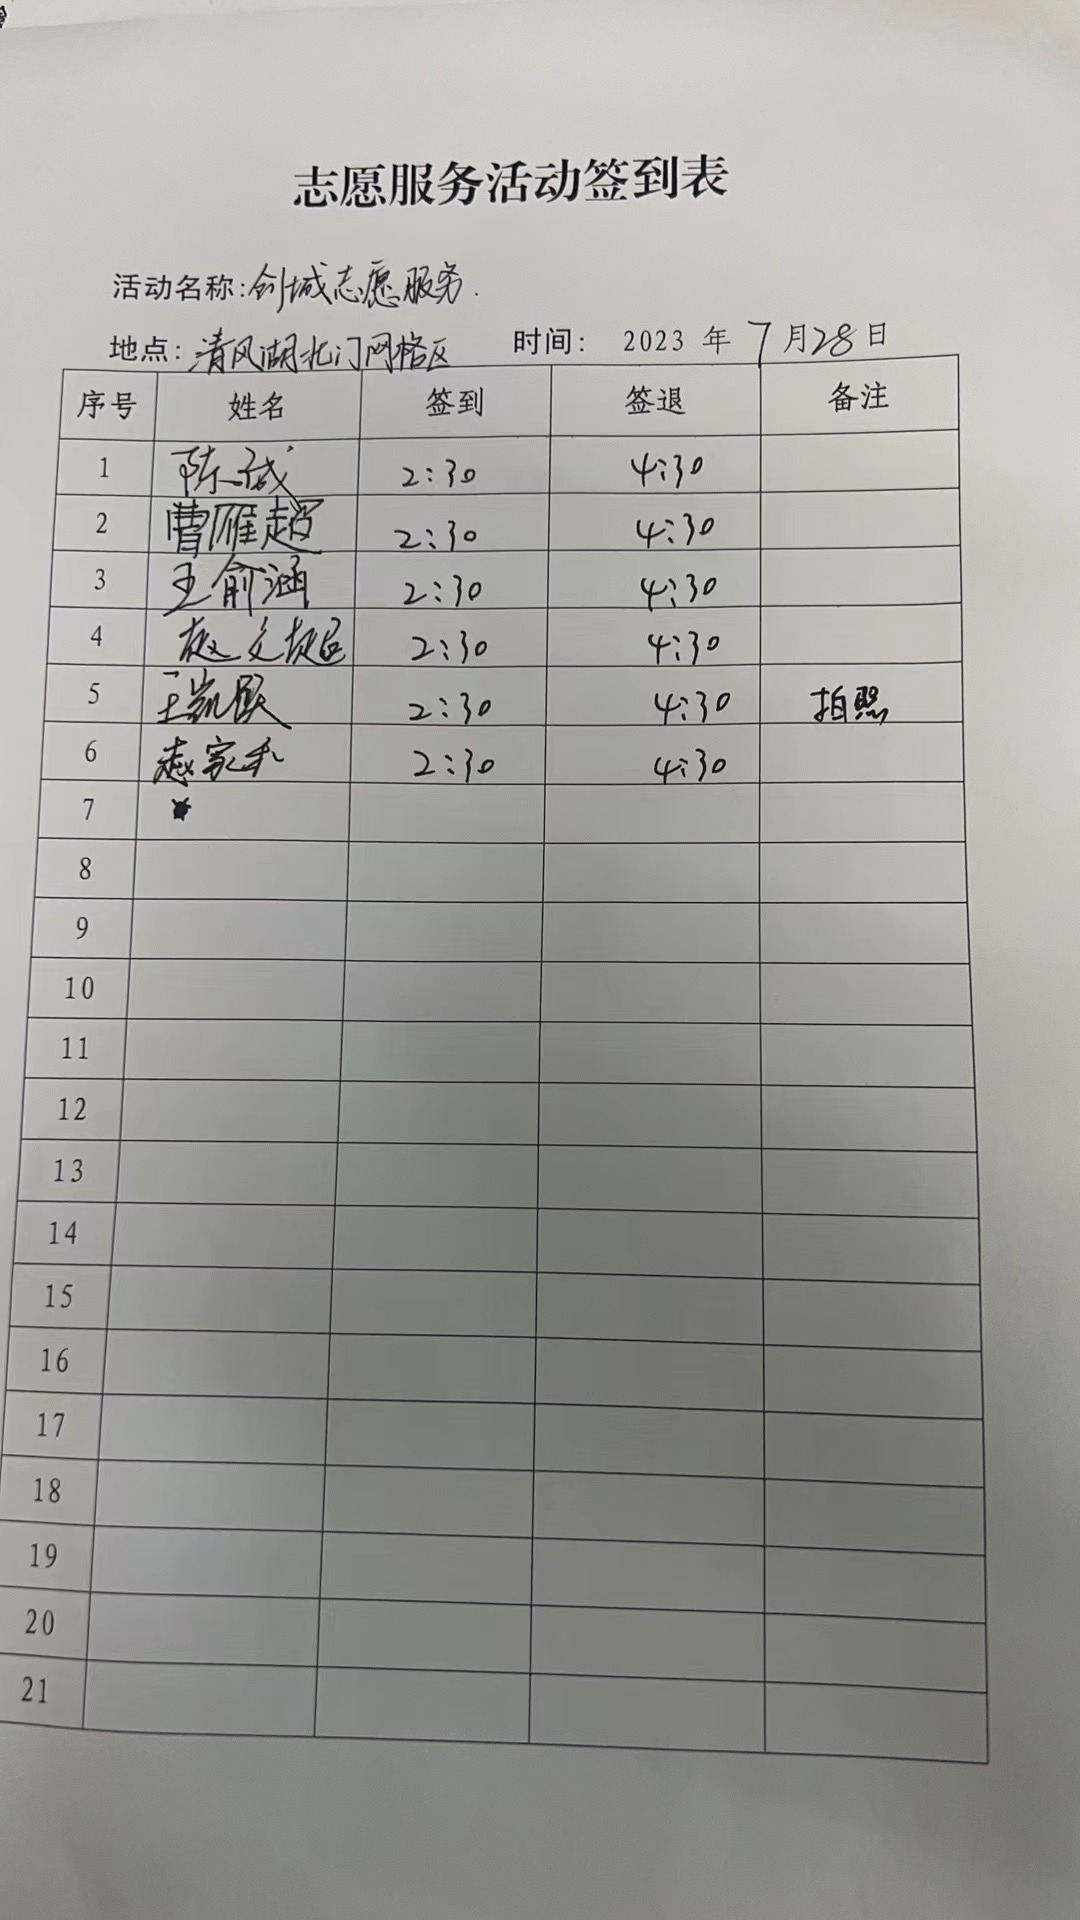 志愿服务活动签到表
活动名称:创城志愿服务.
地点:清风湖北门网格区 时间: 2023 年 7月28日
序号 姓名 签到 签退 备注
1 陈诚 2:30 4:30
2 曹雁超 2:30 4:30
3 王俞涵 2:30 4:30
4 赵文超 2:30 4:30
5 王凯 2:30 4:30 拍照
6 赵家和 2:30 4:30
7
8
9
10
11
12
13
14
15
16
17
18
19
20
21